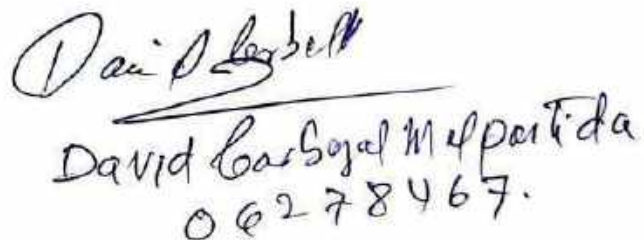 David Carbajal Malpartida
06278467.